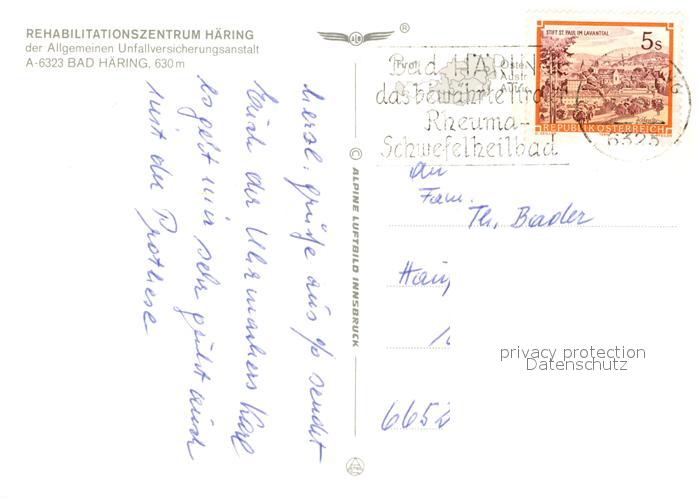 REHABILITATIONSZENTRUM HÄRING
der Allgemeinen Unfallversicherungsanstalt
A-6323 BAD HÄRING, 630 m
®
STIFT ST. PAUL IM LAVANTTAL
5s
REPUBLIK ÖSTERREICH
Bad HÄRIN
das bewährte
Rheuma-
Schwefelheilbad
6323
© ALPINE LUFTBILD INNSBRUCK
herzl. Grüße aus % sendet
Euch der Uhrmachers Karl
es geht mir sehr gut auch
mit der Prothese
An
Fam.
Th. Bader
Hau
6652
privacy protection
Datenschutz